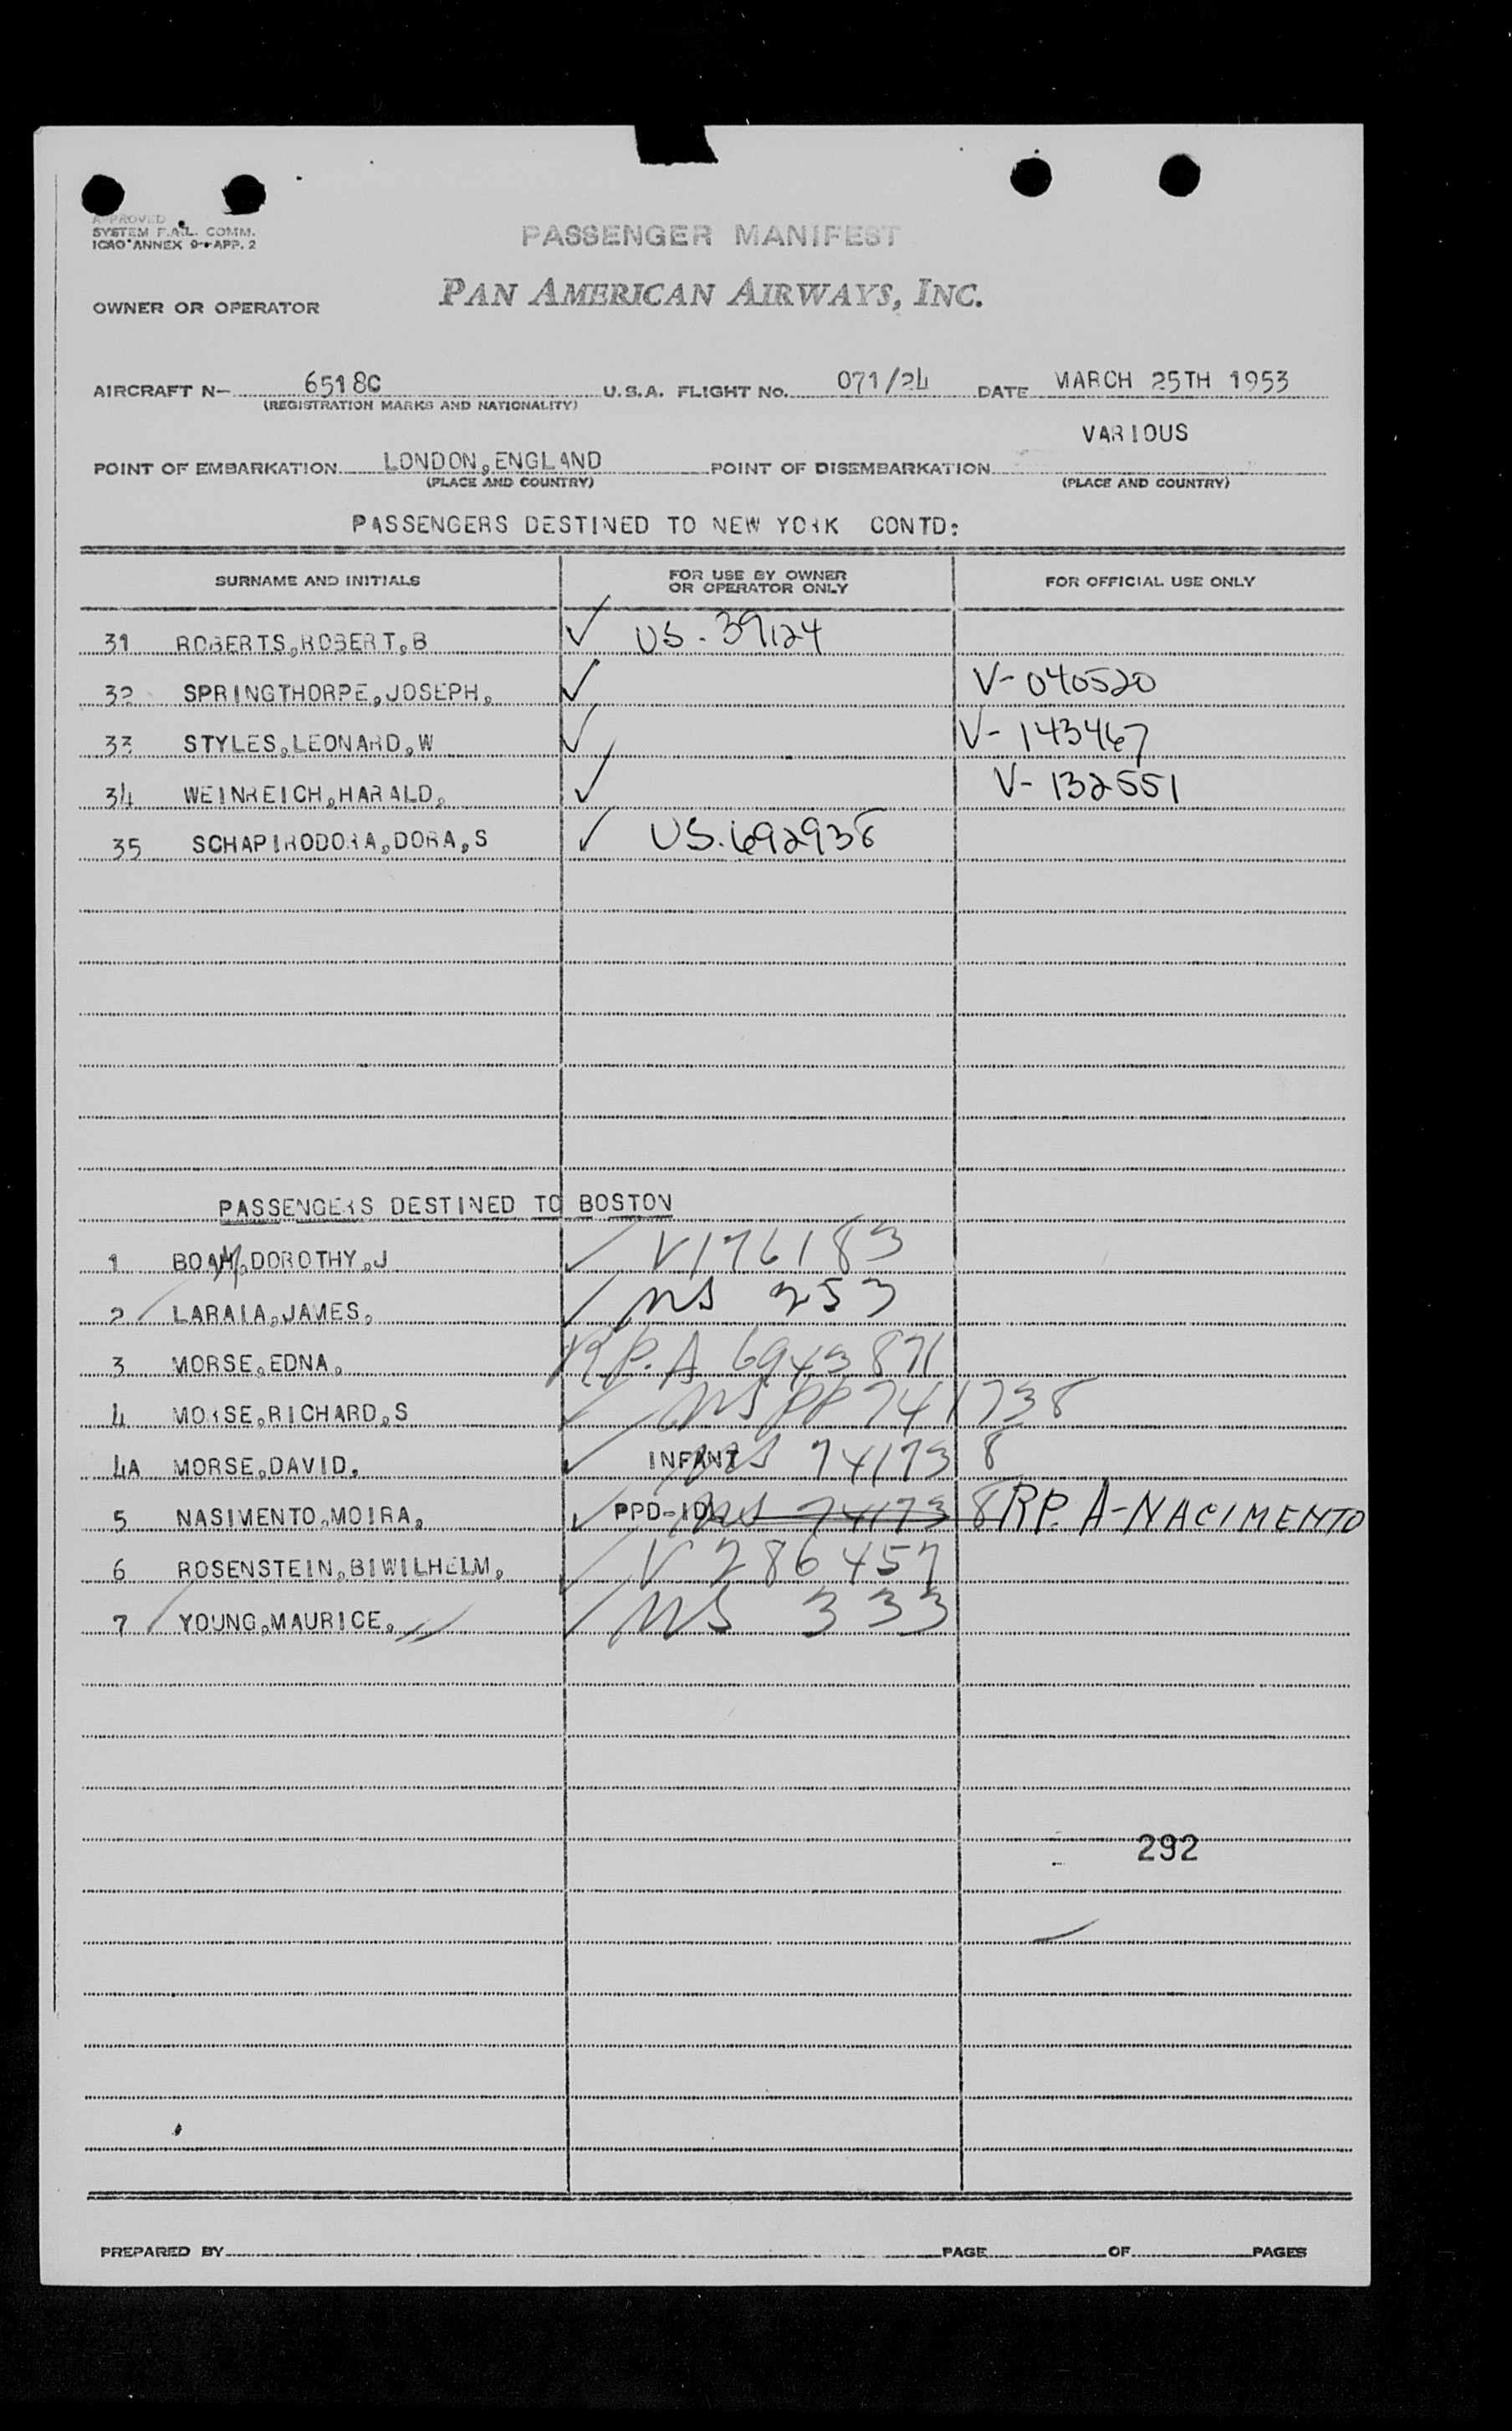 APPROVED
SYSTEM F.A.L. COMM.
ICAO ANNEX 9 - APP. 2
PASSENGER MANIFEST
PAN AMERICAN AIRWAYS, INC.
OWNER OR OPERATOR
AIRCRAFT N- 6518C U.S.A. FLIGHT No. 071/24 DATE MARCH 25TH 1953
(REGISTRATION MARKS AND NATIONALITY)
VARIOUS
POINT OF EMBARKATION LONDON, ENGLAND POINT OF DISEMBARKATION
(PLACE AND COUNTRY) (PLACE AND COUNTRY)
PASSENGERS DESTINED TO NEW YORK CONTD:
SURNAME AND INITIALS FOR USE BY OWNER OR OPERATOR ONLY FOR OFFICIAL USE ONLY
31 ROBERTS, ROBERT, B ✓ US. 39124
32 SPRINGTHORPE, JOSEPH, ✓ V-040520
33 STYLES, LEONARD, W ✓ V-143467
34 WEINREICH, HARALD, ✓ V-132551
35 SCHAPIRODORA, DORA, S ✓ US. 692938
PASSENGERS DESTINED TO BOSTON
1 BOAM, DOROTHY, J ✓ V176183
2 LARAIA, JAMES, ✓ US 253
3 MORSE, EDNA, RP. A 6943871
4 MORSE, RICHARD, S ✓ US PP 741738
4A MORSE, DAVID, ✓ INFANT US 741738
5 NASIMENTO, MOIRA, ✓ PPD-ID US 741738 RP. A-NACIMENTO
6 ROSENSTEIN, BIWILHELM, ✓ V 286457
7 YOUNG, MAURICE, ✓ US 333
292
PREPARED BY PAGE OF PAGES